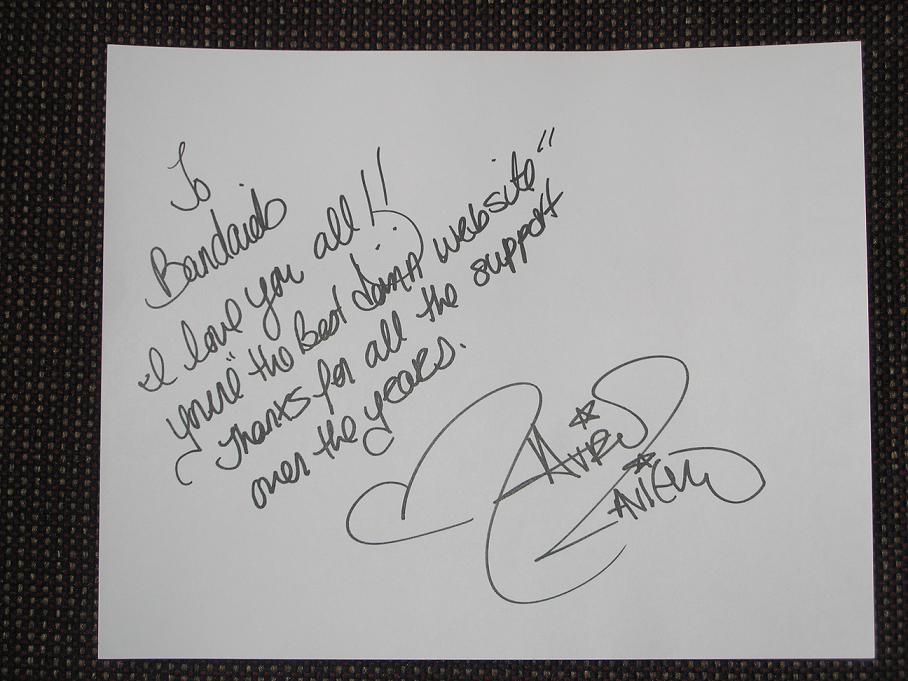 To
Bandaids
I love you all!!
you're "the Best damn website"
Thanks for all the support
over the years.
Avril
Lavigne